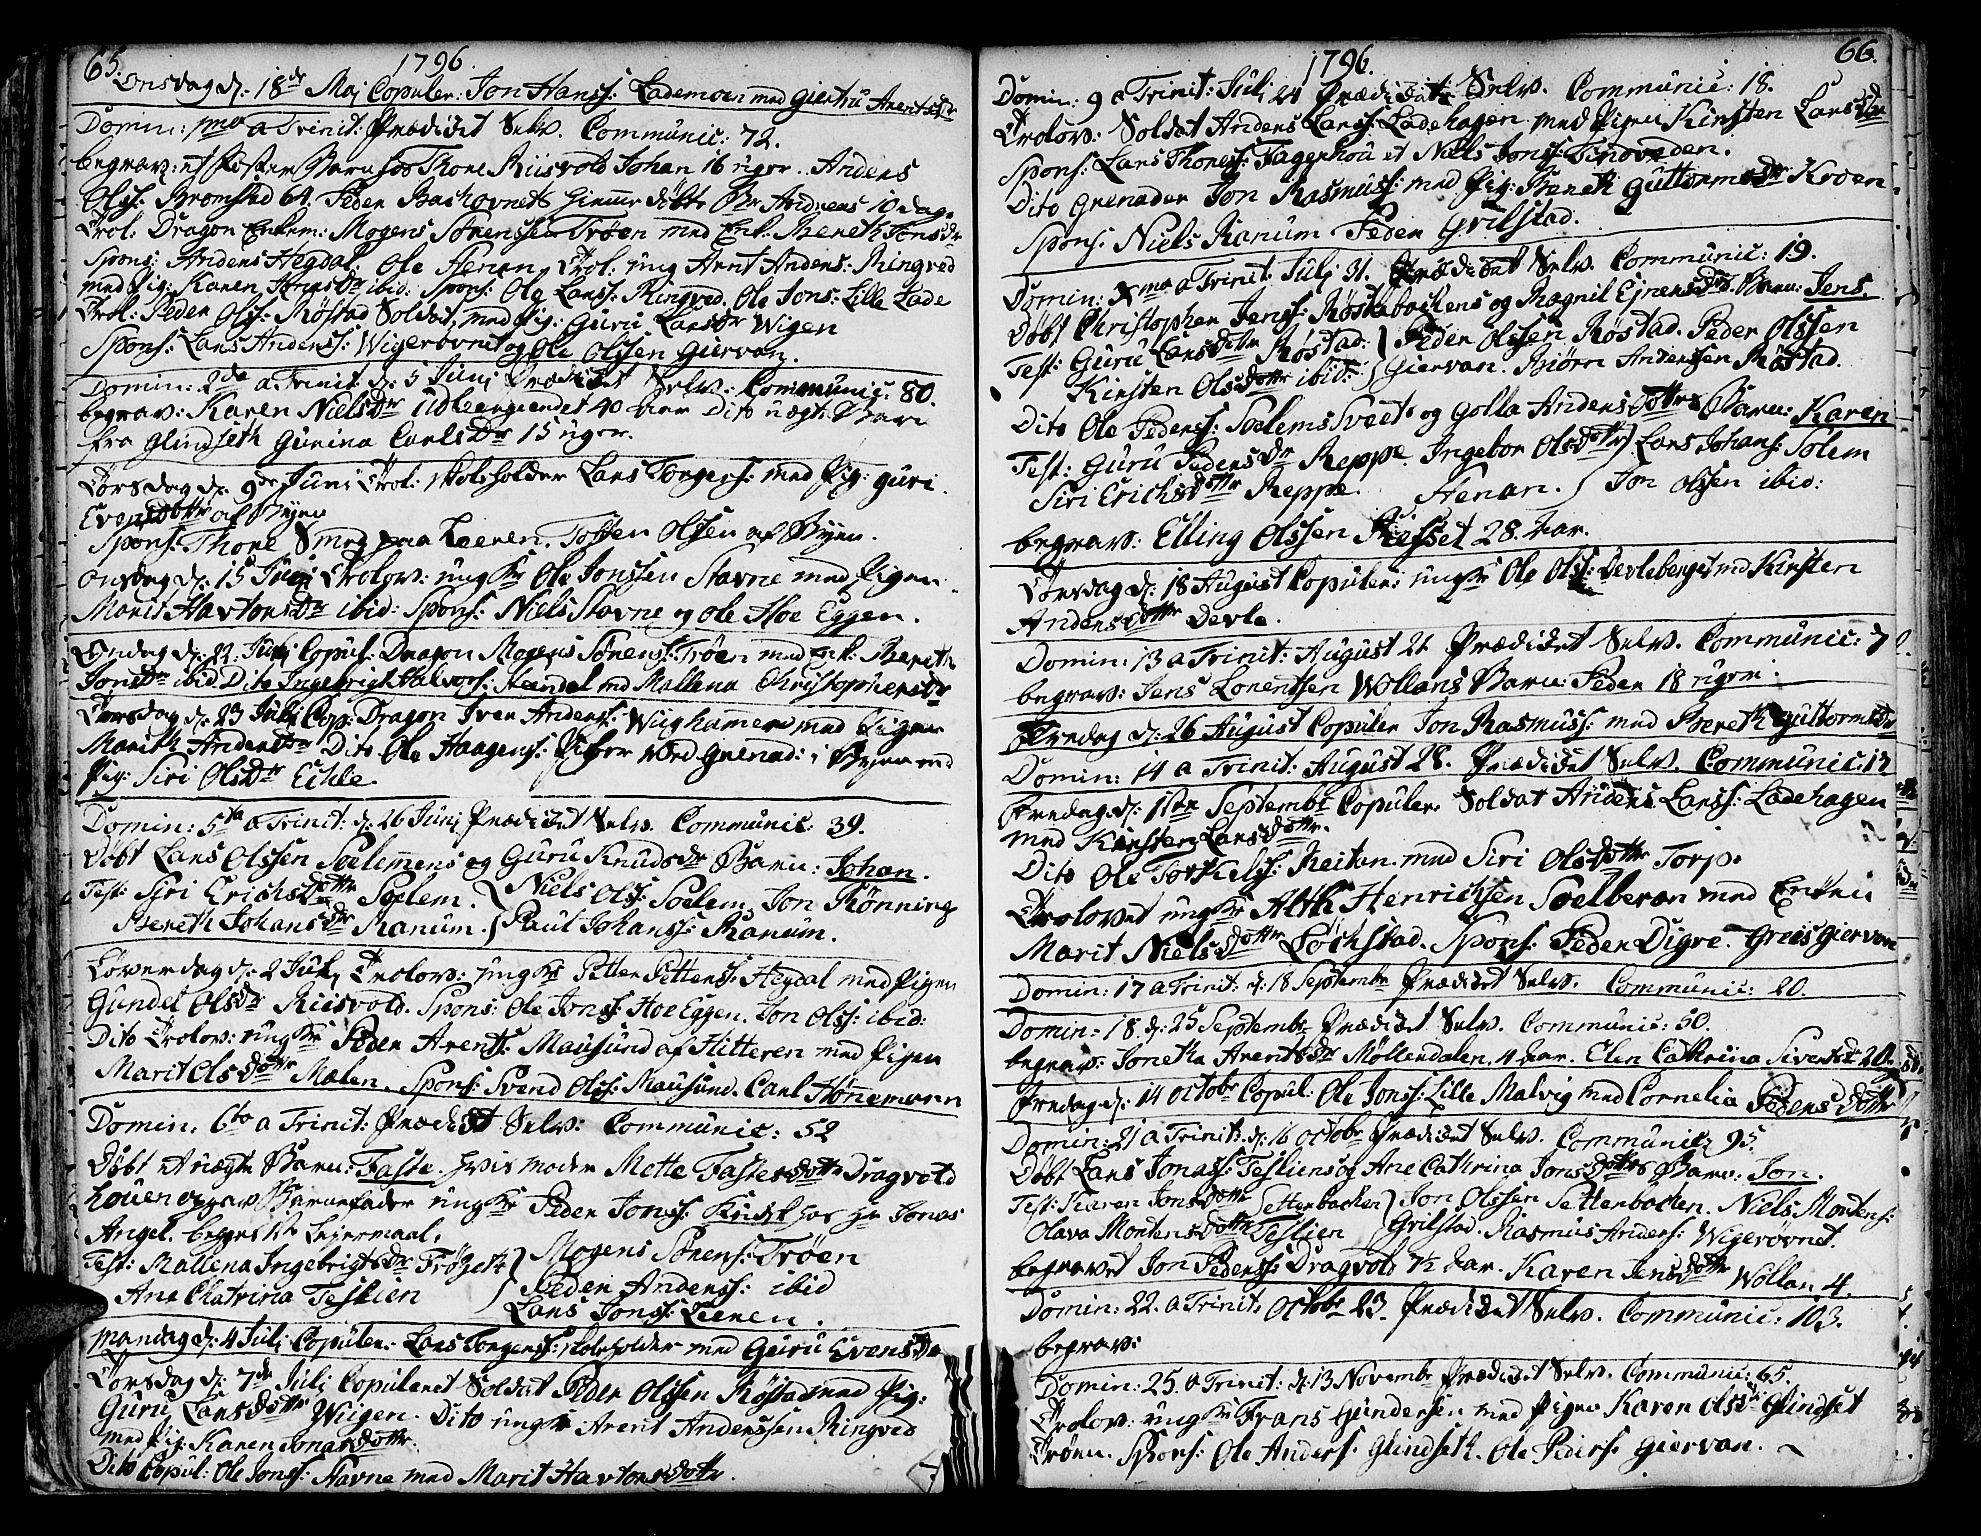 65. 1796.
Onsdag d: 18de Maj Copuler: Jon Hanss: Lademoen med Giertru Arentsdr
Domin: 1ma a Trinit: Prædiket Selv. Communic: 72.
begrav: et Foster Barn hos Thore Riisvold Johan 16 uger. Anders
Olss: Bromstad 64. Peder Bachovnets hiemme døbte Br Andreas 10 dage
Trol: Dragon Enkem: Mogens Sørensen Trøen med Enk: Bereth Jonsdr
Spons: Anders Hegdal. Ole Henen, Trol: ung Arnt Anders: Ringved
med Pig: Karen Jonsdr ibid: Spons: Ole Larss: Ringved. Ole Jons: Lille Lade
Trol: Peder Olss: Røstad Soldat, med Pig: Guru Larsdr Wigen
Spons: Lars Anderss: Wigerovnet og Ole Olssen Giervan.
Domin: 2da a Trinit: d: 5 Juni Prædiket Selv: Communic: 80.
begrav: Karen Nielsdr Udleergiendet 40 Aar Dito uægt: Barn
fra Glindseth Gurina Carlsdr 15 uger.
Torsdag d: 9de Juni Trol: Skoleholder Lars Torgerss: med Pig: Guri
Evensdottr af Byen
Spons: Thore Smed paa Leeren. Tosten Olssen af Byen.
Onsdag d: 15 Juni Trolov: ungkr Ole Jonssen Stavne med Pigen
Marit Havtorsdr ibid: Spons: Niels Stavne og Ole Hoe Eggen.
Onsdag d: 22 Juni Copul: Dragon Mogens Sørens: Trøen med enk: Bereth
Jonsdr ibid Dito Ingebrigt Halvors: Heendal med Mallena Christophersdr
Torsdag d: 23 Juni Cop: Dragon Iver Anders: Wiighamern med Pigen
Marith Andersdr Dito Ole Haagens: ved Grenad: i Byen med
Pig: Siri Olsdr Eckle.
Domin: 5ta a Trinit: d: 26 Juni Prædiket Selv. Communic: 39.
Døbt Lars Olssen Soelemens og Guru Knudsdr Barn: Johan.
Test: Siri Erichsdottr Soelem. } Niels Olss: Soelem, Jon Rønning
Bereth Johansdr Ranum. } Paul Johanss: Ranum.
Løverdag d: 2 Juli Trolov: ungkr Petter Petterss: Hegdal med Pigen
Gundel Olsdr Riisvold. Spons: Ole Jonss: Hoe Eggen. Jon Olss: ibid:
Dito Trolov: ungkr Peder Arents: Mausund af Hitteren med Pigen
Marit Olsdottr Malen. Spons: Svend Olss: Mausund. Carl Hønemoen
Domin: 6to a Trinit: Prædiket Selv: Communic: 52
Døbt et uægte Barn: Faste. hvis moder Mette Fastesdottr Dragvold
houen opgav Barnefader ungkr Peder Jonss: Kudsk hos Hr Jonas
Angel. begges 1te Lejermaal.
Test: Mallena Ingebrigtsdr Frøset } Mogens Sørens: Trøen
Ane Chatrina Teslien } Peder Anderss: ibid
Lars Jonss: Leeren.
Mandag d: 4 Juli Copuler: Lars Torgerss: Skoleholder med Guru Evensdr
Torsdag d: 7de Juli Copuleret Soldat Peder Olssen Røstad med Pig:
Guru Larsdottr Wiigen. Dito ungkr Arent Anderssen Ringved
med Pig: Karen Jonasdottr.
Dito Copul: Ole Jonss: Stavne med Marit Havtorsdottr.
1796. 66.
Domin: 9 a Trinit: Juli 24 Prædiket Selv. Communic: 18.
Trolov: Soldat Anders Larss: Ladehagen med Pigen Kirsten Larsdr
Spons: Lars Thoress: Fagerhou et Niels Jonss: Tindveden.
Dito Grenader Jon Rasmuss: med Pig: Bereth Guttormsdr Kroen.
Spons: Niels Ranum Peder Grilstad.
Domin: Xma a Trinit: Juli 31. Prædiket Selv. Communic: 19.
Døbt Christopher Jenss: Røstabackens og Magnil Ejnersdrs Barn: Jens.
Test: Guru Larsdottr Røstad: } Peder Olssen Røstad. Peder Olssen
Kirsten Olsdottr ibid: } Giervan. Biørn Anderssen Røstad.
Dito Ole Pederss: Soelems Svaet og Golla Andersdottrs Barn: Karen
Test: Guru Pedersdr Reppe. Ingebor Olsdottr } Lars Johans: Solem
Siri Erichsdottr Reppe. Henan. } Jon Olssen ibid:
begrav: Elling Olssen Refset 28 Aar.
Torsdag d: 18 August Copuler: ungkr Ole Olss: Devleberget med Kirsten
Andersdottr Devle.
Domin: 13 a Trinit: August 21 Prædiket Selv. Communic: 70.
begrav: Jens Lorentsen Wollans Barn: Peder 18 uger.
Fredag d: 26 August Copuler Jon Rasmuss: med Bereth Guttormsdr
Domin: 14 a Trinit: August 28. Prædiket Selv. Communic: 17
Fredag d: 1ste Septembr Copuler: Soldat Anders Larss: Ladehagen
med Kirsten Larsdottr.
Dito Ole Torkelss: Reitan med Siri Olsdottr Torp.
Trolovet ungkr Alth Henrichsen Soelberan med Enken
Marit Nielsdottr Løchstad. Spons: Peder Digre. Greis Giervan
Domin: 17 a Trinit: d: 18 Septembr Prædiket Selv. Communic: 20.
Domin: 18. d: 25 Septembr Prædiket Selv. Communic: 50.
begrav: Jonetha Arentsdr Møllendalen. 4 Aar. Elen Cathrina Sivertsdr 20.
Fredag d: 14 Octobr Copul: Ole Jonss: Lille Malvig med Cornelia Pedersdottr
Domin: 21 a Trinit: d: 16 Octobr Prædiket Selv. Communic: 95.
Døbt Lars Jonass: Tesliens og Ane Cathrina Jonsdottrs Barn: Jon.
Test: Karen Jonsdottr Setterbacken } Jon Olssen Setterbacken. Niels Mortens:
Olava Mortensdottr Teslien } Grilstad. Rasmus Anders: Wigerøvnet.
begravet Jon Pederss: Dragvold 7½ Aar. Karen Jensdottr Wollan 4.
Domin: 22. a Trinit: Octobr 23. Prædiket Selv. Communic: 103.
begrav:
Domin: 25. a Trinit: d: 13 Novembr Prædiket Selv. Communic: 65.
Trolov: ungkr Frans Gundersen med Pigen Karen Olsdr Glindset
Trøen. Spons: Ole Anders: Glindseth. Ole Peders: Giervan.